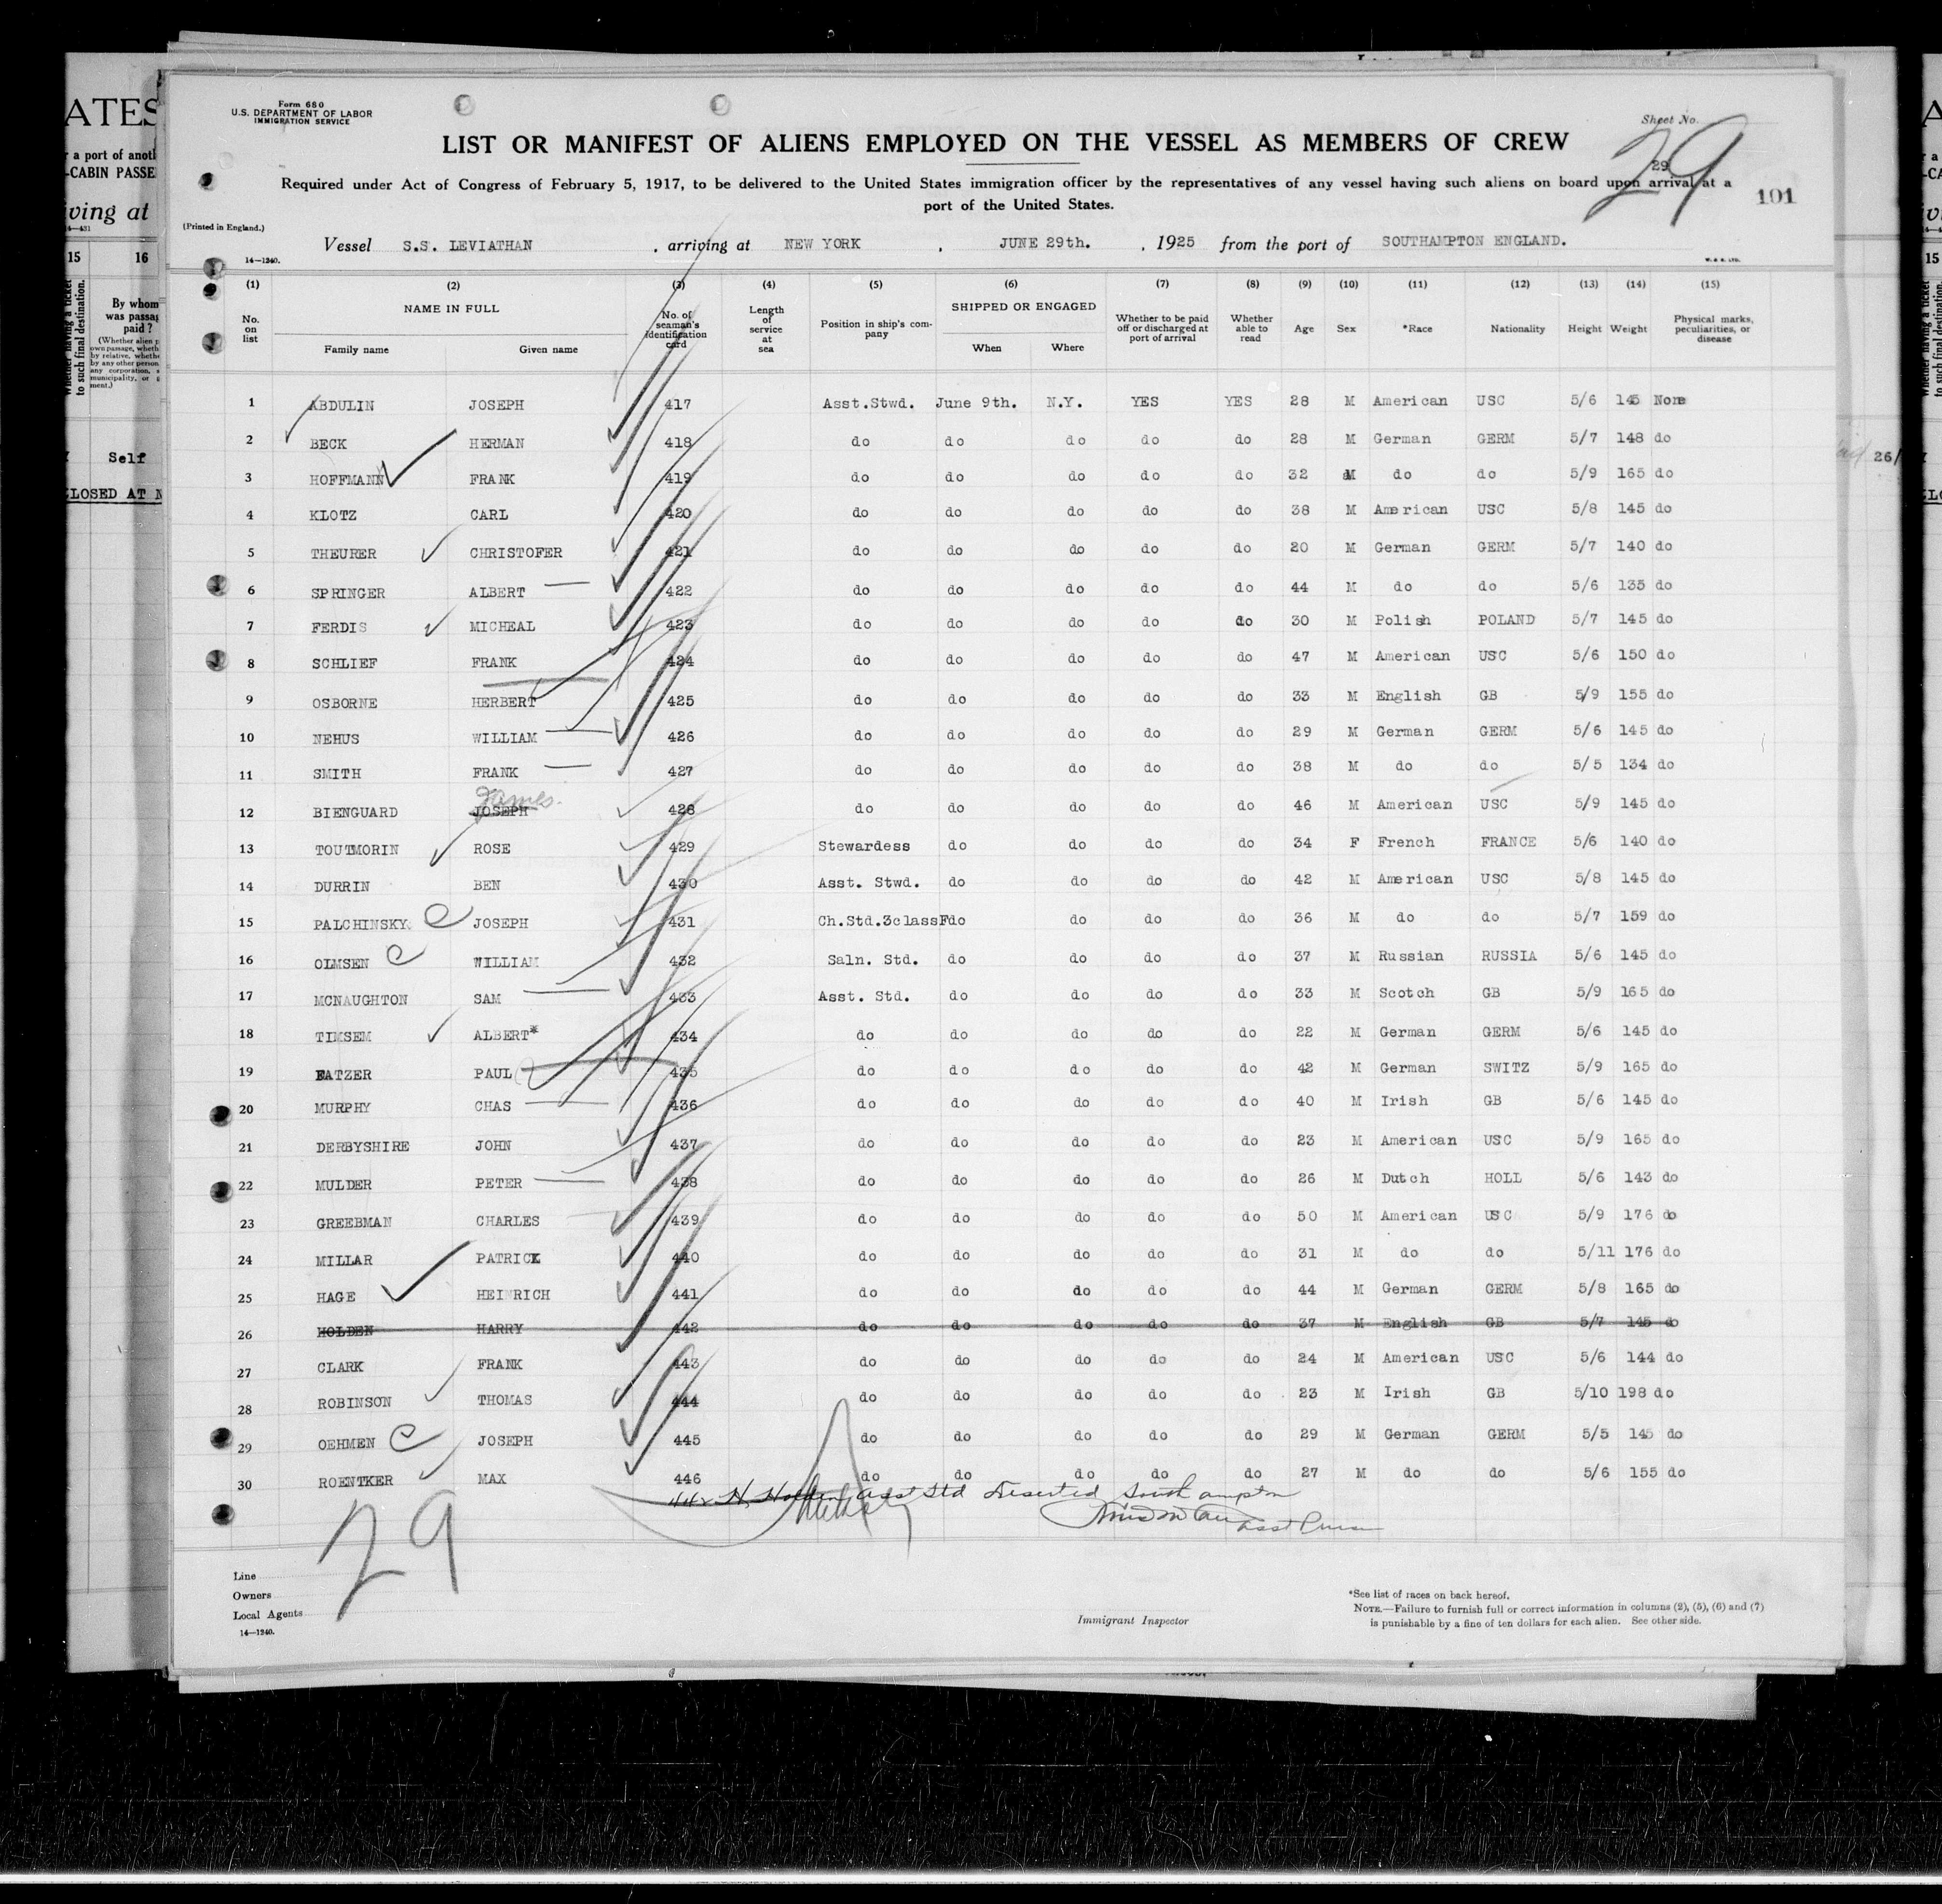 Form 680
U.S. DEPARTMENT OF LABOR
IMMIGRATION SERVICE
Sheet No.
29
29
101
LIST OR MANIFEST OF ALIENS EMPLOYED ON THE VESSEL AS MEMBERS OF CREW
Required under Act of Congress of February 5, 1917, to be delivered to the United States immigration officer by the representatives of any vessel having such aliens on board upon arrival at a
port of the United States.
(Printed in England.)
Vessel S.S. LEVIATHAN , arriving at NEW YORK , JUNE 29th. , 1925 from the port of SOUTHAMPTON ENGLAND.
14—1240.
(1) (2) (3) (4) (5) (6) (7) (8) (9) (10) (11) (12) (13) (14) (15)
No. on list NAME IN FULL Family name Given name No. of seaman's identification card Length of service at sea Position in ship's company SHIPPED OR ENGAGED When Where Whether to be paid off or discharged at port of arrival Whether able to read Age Sex *Race Nationality Height Weight Physical marks, peculiarities, or disease
1 ABDULIN JOSEPH 417 Asst.Stwd. June 9th. N.Y. YES YES 28 M American USC 5/6 145 None
2 BECK HERMAN 418 do do do do do 28 M German GERM 5/7 148 do
3 HOFFMANN FRANK 419 do do do do do 32 M do do 5/9 165 do
4 KLOTZ CARL 420 do do do do do 38 M American USC 5/8 145 do
5 THEURER CHRISTOFER 421 do do do do do 20 M German GERM 5/7 140 do
6 SPRINGER ALBERT 422 do do do do do 44 M do do 5/6 135 do
7 FERDIS MICHEAL 423 do do do do do 30 M Polish POLAND 5/7 145 do
8 SCHLIEF FRANK 424 do do do do do 47 M American USC 5/6 150 do
9 OSBORNE HERBERT 425 do do do do do 33 M English GB 5/9 155 do
10 NEHUS WILLIAM 426 do do do do do 29 M German GERM 5/6 145 do
11 SMITH FRANK 427 do do do do do 38 M do do 5/5 134 do
James.
12 BIENGUARD JOSEPH 428 do do do do do 46 M American USC 5/9 145 do
13 TOUTMORIN ROSE 429 Stewardess do do do do 34 F French FRANCE 5/6 140 do
14 DURRIN BEN 430 Asst. Stwd. do do do do 42 M American USC 5/8 145 do
15 PALCHINSKY. JOSEPH 431 Ch.Std.3classFdo do do do 36 M do do 5/7 159 do
16 OLMSEN WILLIAM 432 Saln. Std. do do do do 37 M Russian RUSSIA 5/6 145 do
17 MCNAUGHTON SAM 433 Asst. Std. do do do do 33 M Scotch GB 5/9 165 do
18 TIMSEM ALBERT* 434 do do do do do 22 M German GERM 5/6 145 do
19 FATZER PAUL 435 do do do do do 42 M German SWITZ 5/9 165 do
20 MURPHY CHAS 436 do do do do do 40 M Irish GB 5/6 145 do
21 DERBYSHIRE JOHN 437 do do do do do 23 M American USC 5/9 165 do
22 MULDER PETER 438 do do do do do 26 M Dutch HOLL 5/6 143 do
23 GREEBMAN CHARLES 439 do do do do do 50 M American USC 5/9 176 do
24 MILLAR PATRICK 440 do do do do do 31 M do do 5/11 176 do
25 HAGE HEINRICH 441 do do do do do 44 M German GERM 5/8 165 do
26 HOLDEN HARRY 442 do do do do do 37 M English GB 5/7 145 do
27 CLARK FRANK 443 do do do do do 24 M American USC 5/6 144 do
28 ROBINSON THOMAS 444 do do do do do 23 M Irish GB 5/10 198 do
29 OEHMEN JOSEPH 445 do do do do do 29 M German GERM 5/5 145 do
30 ROENTKER MAX 446 do do do do do 27 M do do 5/6 155 do
442 H. Holden asst Std Deserted Southampton
29
Line
Owners
Local Agents
14—1240.
Immigrant Inspector
*See list of races on back hereof.
NOTE.—Failure to furnish full or correct information in columns (2), (5), (6) and (7)
is punishable by a fine of ten dollars for each alien. See other side.
ATES
r a port of anoth
-CABIN PASSE
iving at
15 16
to such final destination.
By whom
was passag
paid?
Self
CLOSED AT N
26/